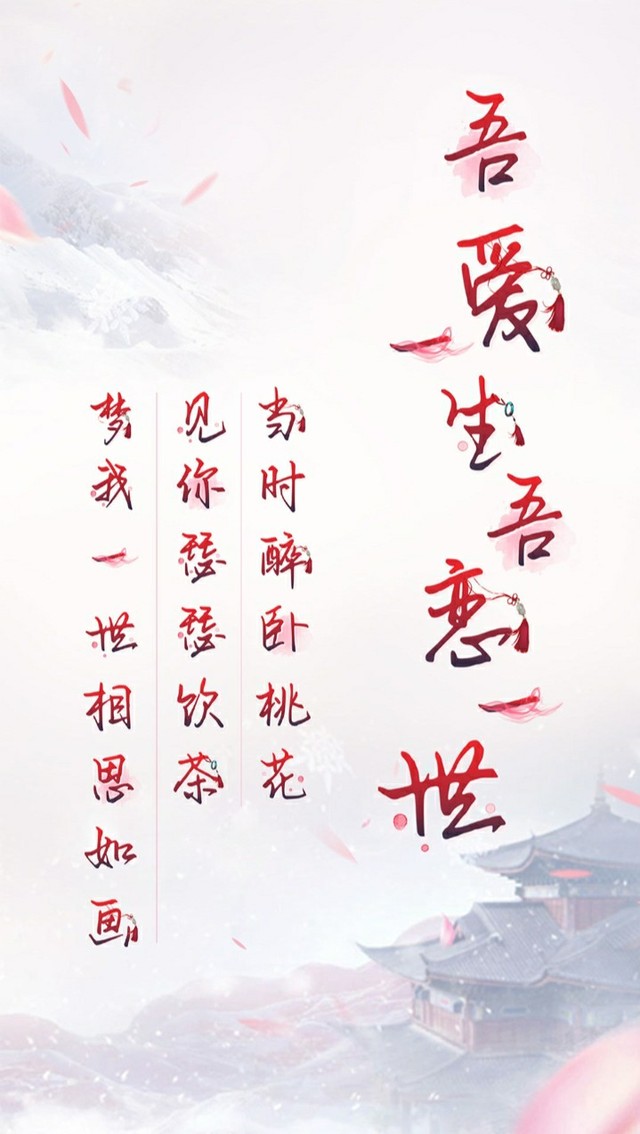 吾爱一生
吾恋一世
当时醉卧桃花
见你瑟瑟饮茶
梦我一世相思如画